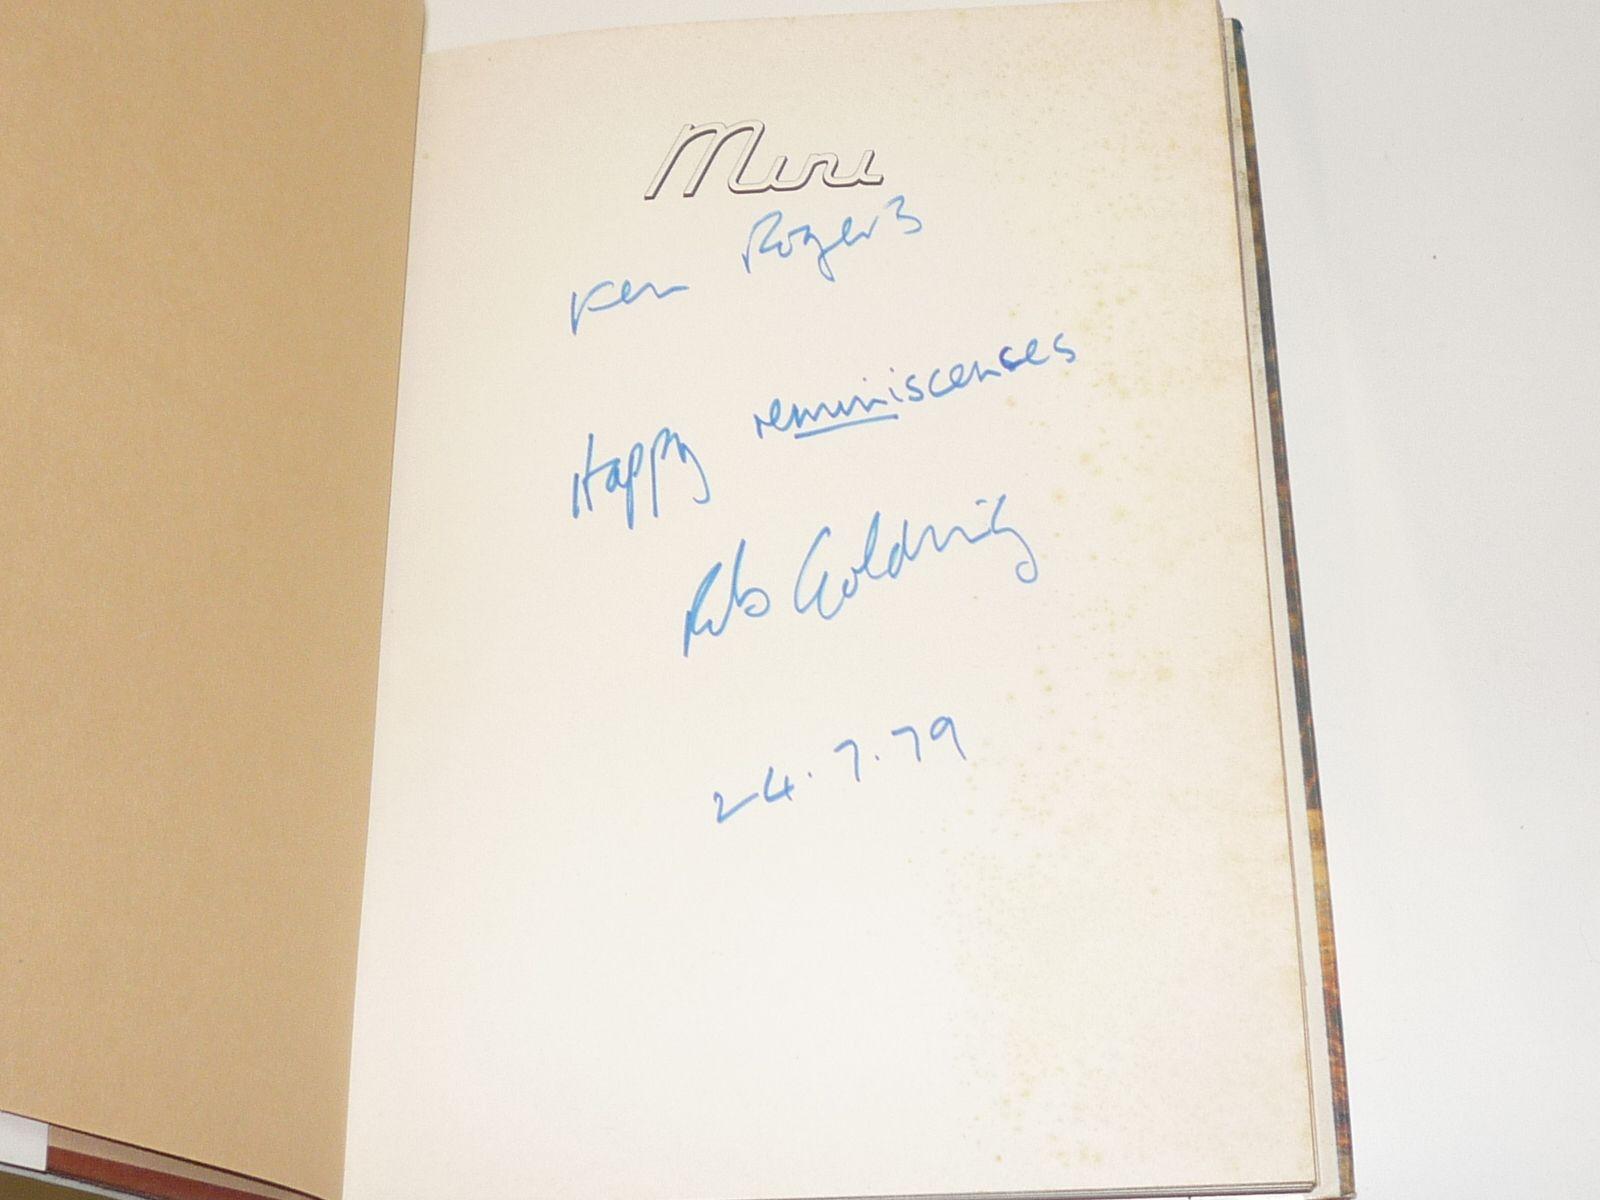 Mini
Ken Rogers
Happy reminiscenses
Rob Golding
24.7.79